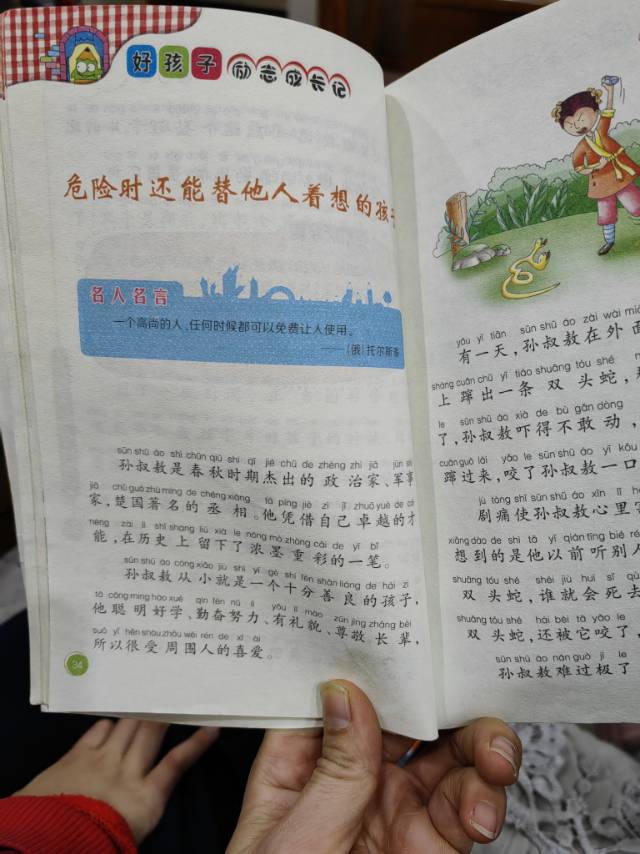 好孩子励志成长记
危险时还能替他人着想的孩
名人名言
一个高尚的人,任何时候都可以免费让人使用。
——(俄)托尔斯泰
sūn shū áo shì chūn qiū shí qī jié chū de zhèng zhì jiā
孙叔敖是春秋时期杰出的政治家、军事
jiā chǔ guó zhù míng de chéng xiàng tā píng jiè zì jǐ zhuó yuè de
家,楚国著名的丞相。他凭借自己卓越的才
néng zài lì shǐ shang liú xià le nóng mò zhòng cǎi de yì bǐ
能,在历史上留下了浓墨重彩的一笔。
sūn shū áo cóng xiǎo jiù shì yí gè shí fēn shàn liáng de hái zi
孙叔敖从小就是一个十分善良的孩子,
tā cōng míng hào xué qín fèn nǔ lì yǒu lǐ mào zūn jìng zhǎng bèi
他聪明好学、勤奋努力、有礼貌、尊敬长辈,
suǒ yǐ hěn shòu zhōu wéi rén de xǐ ài
所以很受周围人的喜爱。
34
yǒu yì tiān sūn shū áo zài wài miàn
有一天,孙叔敖在外面
shàng cuān chū yì tiáo shuāng tóu shé
上蹿出一条双头蛇,
le sūn shū áo xià de bù gǎn dòng
了,孙叔敖吓得不敢动,
cuān guò lái yǎo le sūn shū áo yì kǒu
蹿过来,咬了孙叔敖一口
jù tòng shǐ sūn shū áo xīn lǐ
剧痛使孙叔敖心里
xiǎng dào de shì tā yǐ qián tīng bié rén
想到的是他以前听别人
shuāng tóu shé shéi jiù huì sǐ qù
双头蛇,谁就会死去
shuāng tóu shé hái bèi tā yǎo le
双头蛇,还被它咬了,
sūn shū áo nán guò jí le
孙叔敖难过极了